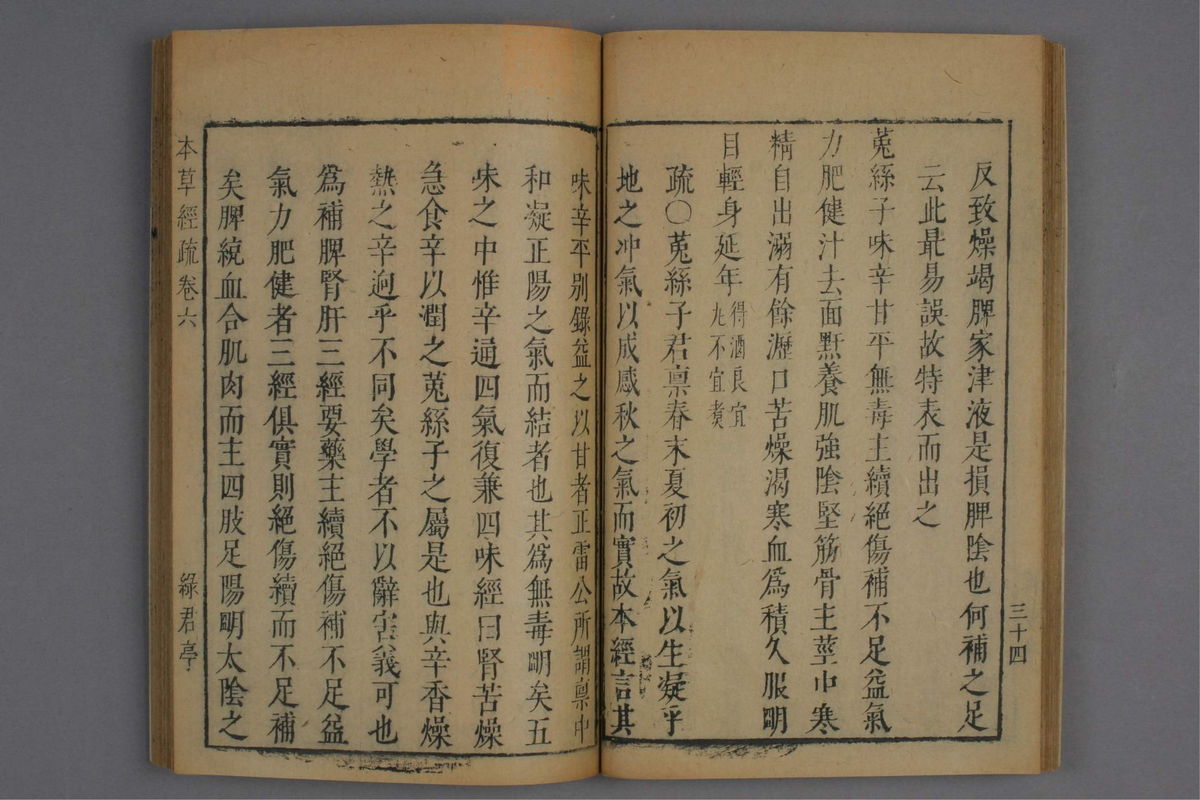 三十四
反致燥竭脾家津液是損脾陰也何補之足
云此最易誤故特表而出之
菟絲子味辛甘平無毒主續絕傷補不足益氣
力肥健汁去面䵟養肌強陰堅筋骨主莖中寒
精自出溺有餘瀝口苦燥渴寒血爲積久服明
目輕身延年得酒良宜
𠀋不宜煑
疏〇菟絲子君稟春末夏初之氣以生凝乎
地之冲氣以成感秋之氣而實故本經言其
味辛平别錄益之以甘者正雷公所謂稟中
和凝正陽之氣而結者也其爲無毒明矣五
味之中惟辛通四氣復兼四味經曰腎苦燥
急食辛以潤之菟絲子之屬是也與辛香燥
熱之辛逈乎不同矣學者不以辭害義可也
爲補脾腎肝三經要藥主續絕傷補不足益
氣力肥健者三經俱實則絕傷續而不足補
矣脾統血合肌肉而主四肢足陽明太陰之
本草經疏卷六
綠君亭